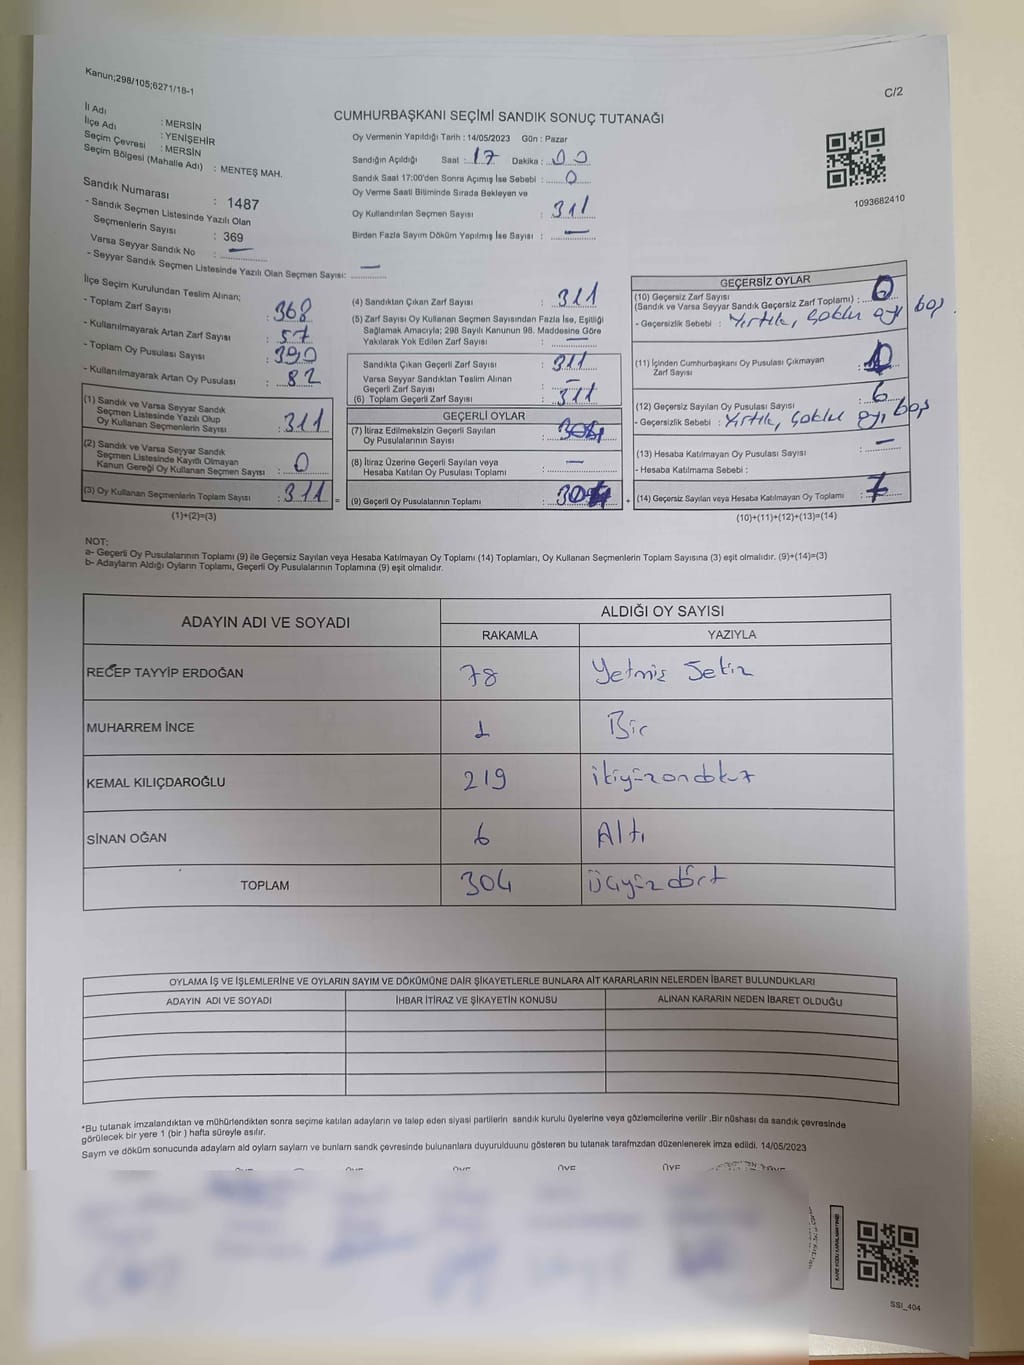 Kanun;298/105;6271/18-1
C/2
CUMHURBAŞKANI SEÇİMİ SANDIK SONUÇ TUTANAĞI
İl Adı : MERSİN
İlçe Adı : YENİŞEHİR
Seçim Çevresi : MERSİN
Seçim Bölgesi (Mahalle Adı) : MENTEŞ MAH.
Sandık Numarası : 1487
- Sandık Seçmen Listesinde Yazılı Olan
Seçmenlerin Sayısı : 369
Varsa Seyyar Sandık No : —
- Seyyar Sandık Seçmen Listesinde Yazılı Olan Seçmen Sayısı: —
Oy Vermenin Yapıldığı Tarih : 14/05/2023 Gün : Pazar
Sandığın Açıldığı Saat : 17 Dakika : 00
Sandık Saat 17:00'den Sonra Açımış İse Sebebi : 0
Oy Verme Saati Bitiminde Sırada Bekleyen ve
Oy Kullandırılan Seçmen Sayısı : 311
Birden Fazla Sayım Döküm Yapılmış İse Sayısı : —
1093682410
İlçe Seçim Kurulundan Teslim Alınan;
- Toplam Zarf Sayısı : 368
- Kullanılmayarak Artan Zarf Sayısı : 57
- Toplam Oy Pusulası Sayısı : 390
- Kullanılmayarak Artan Oy Pusulası : 82
(1) Sandık ve Varsa Seyyar Sandık
Seçmen Listesinde Yazılı Olup
Oy Kullanan Seçmenlerin Sayısı : 311
(2) Sandık ve Varsa Seyyar Sandık
Seçmen Listesinde Kayıtlı Olmayan
Kanun Gereği Oy Kullanan Seçmen Sayısı : 0
(3) Oy Kullanan Seçmenlerin Toplam Sayısı : 311 =
(1)+(2)=(3)
(4) Sandıktan Çıkan Zarf Sayısı : 311
(5) Zarf Sayısı Oy Kullanan Seçmen Sayısından Fazla İse, Eşitliği
Sağlamak Amacıyla; 298 Sayılı Kanunun 98. Maddesine Göre
Yakılarak Yok Edilen Zarf Sayısı : —
Sandıkta Çıkan Geçerli Zarf Sayısı : 311
Varsa Seyyar Sandıktan Teslim Alınan
Geçerli Zarf Sayısı : —
(6) Toplam Geçerli Zarf Sayısı : 311
GEÇERLİ OYLAR
(7) İtiraz Edilmeksizin Geçerli Sayılan
Oy Pusulalarının Sayısı :
(8) İtiraz Üzerine Geçerli Sayılan veya
Hesaba Katılan Oy Pusulası Toplamı : —
(9) Geçerli Oy Pusulalarının Toplamı : 304 +
GEÇERSİZ OYLAR
(10) Geçersiz Zarf Sayısı
(Sandık ve Varsa Seyyar Sandık Geçersiz Zarf Toplamı) : 0
- Geçersizlik Sebebi : Yırtık, çoklu oy boş
(11) İçinden Cumhurbaşkanı Oy Pusulası Çıkmayan
Zarf Sayısı :
(12) Geçersiz Sayılan Oy Pusulası Sayısı : 6
- Geçersizlik Sebebi : Yırtık, çoklu oy boş
(13) Hesaba Katılmayan Oy Pusulası Sayısı : —
- Hesaba Katılmama Sebebi :
(14) Geçersiz Sayılan veya Hesaba Katılmayan Oy Toplamı : 7
(10)+(11)+(12)+(13)=(14)
NOT:
a- Geçerli Oy Pusulalarının Toplamı (9) ile Geçersiz Sayılan veya Hesaba Katılmayan Oy Toplamı (14) Toplamları, Oy Kullanan Seçmenlerin Toplam Sayısına (3) eşit olmalıdır. (9)+(14)=(3)
b- Adayların Aldığı Oyların Toplamı, Geçerli Oy Pusulalarının Toplamına (9) eşit olmalıdır.
ADAYIN ADI VE SOYADI ALDIĞI OY SAYISI
RAKAMLA YAZIYLA
RECEP TAYYİP ERDOĞAN 78 Yetmiş Sekiz
MUHARREM İNCE 1 Bir
KEMAL KILIÇDAROĞLU 219 ikiyüzondokuz
SİNAN OĞAN 6 Altı
TOPLAM 304 Üçyüzdört
OYLAMA İŞ VE İŞLEMLERİNE VE OYLARIN SAYIM VE DÖKÜMÜNE DAİR ŞİKAYETLERLE BUNLARA AİT KARARLARIN NELERDEN İBARET BULUNDUKLARI
ADAYIN ADI VE SOYADI İHBAR İTİRAZ VE ŞİKAYETİN KONUSU ALINAN KARARIN NEDEN İBARET OLDUĞU
*Bu tutanak imzalandıktan ve mühürlendikten sonra seçime katılan adayların ve talep eden siyasi partilerin sandık kurulu üyelerine veya gözlemcilerine verilir .Bir nüshası da sandık çevresinde
görülecek bir yere 1 (bir ) hafta süreyle asılır.
Saym ve döküm sonucunda adaylarn ald oylarn sayları ve bunlarn sandk çevresinde bulunanlara duyurulduunu gösteren bu tutanak tarafmzdan düzenlenerek imza edildi. 14/05/2023
SSI_404